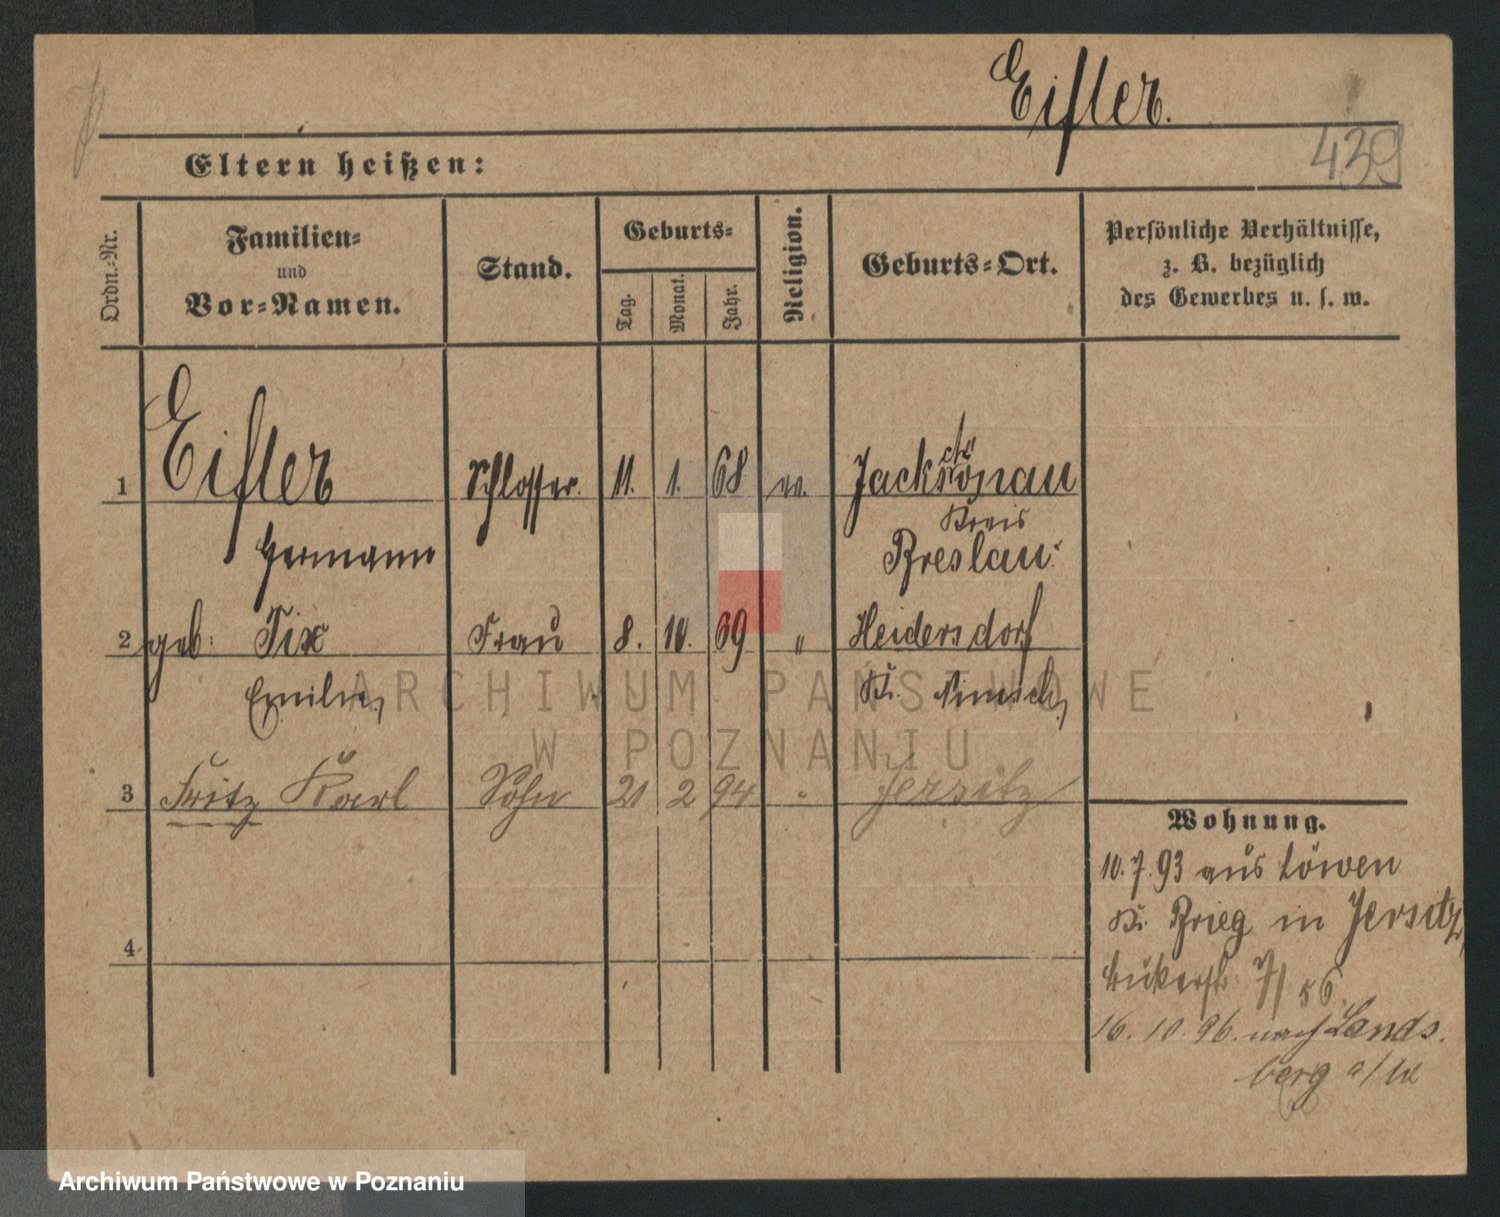 Eifler.
439
Eltern heißen:
Ordn.-Nr.
Familien-
und
Vor-Namen.
Stand.
Geburts-
Tag.
Monat.
Jahr.
Religion.
Geburts-Ort.
Persönliche Verhältnisse,
z. B. bezüglich
des Gewerbes u. s. w.
1 Eifler Schlosser. 11. 1. 68 ev. Jackschönau
Hermann Kreis
Breslau.
2 geb: Tix Frau 8. 10. 69 " Heidersdorf
Emilie, Kr. Nimsch,
3 Fritz Karl Sohn 21 2 94 " Jersitz
4.
Wohnung.
10. 7. 93 aus Löwen
Kr. Brieg in Jersitz,
Bukerstr. 7/
16. 10. 96. nach Lands-
berg a/W
ARCHIWUM PAŃSTWOWE
W POZNANIU
Archiwum Państwowe w Poznaniu